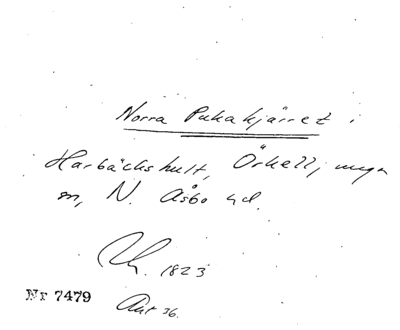 Norra Pukakjärret i
Harbäckshult, Örkelljunga
sn, N. Åsbo hd.
Lh. 1823
Nr 7479
Akt 36.